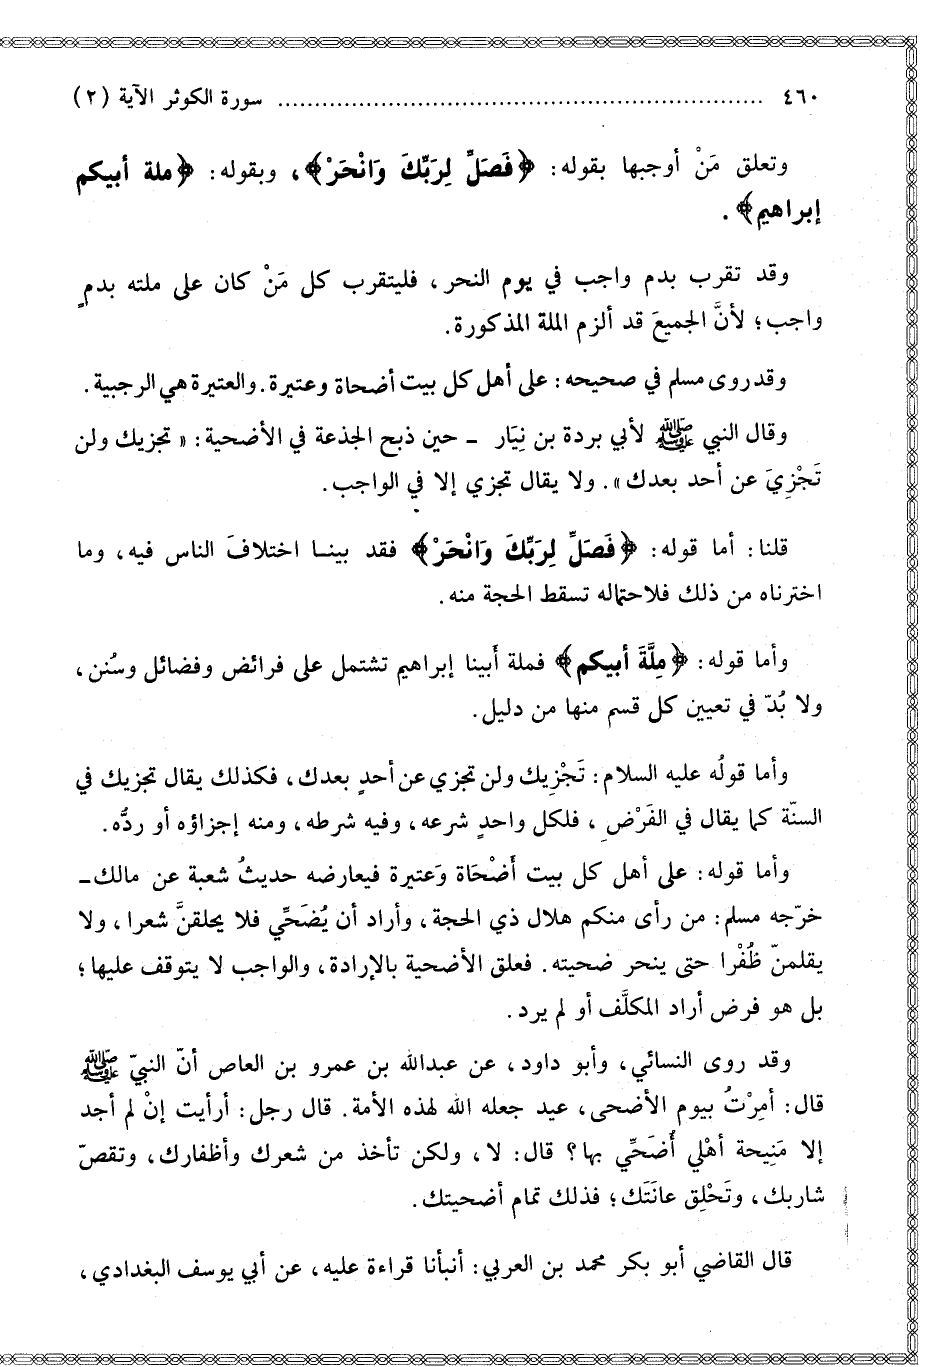 ٤٦٠ ................................................................ سورة الكوثر الآية (٢)
وتعلق مَنْ أوجبها بقوله: ﴿فَصَلِّ لِرَبِّكَ وَانْحَرْ﴾، وبقوله: ﴿ملة أبيكم
إبراهيم﴾.
وقد تقرب بدم واجب في يوم النحر، فليتقرب كل مَنْ كان على ملته بدمٍ
واجب؛ لأنَّ الجميعَ قد ألزم الملة المذكورة.
وقد روى مسلم في صحيحه: على أهل كل بيت أضحاة وعتيرة. والعتيرة هي الرجبية.
وقال النبي ﷺ لأبي بردة بن نِيَار - حين ذبح الجذعة في الأضحية: «تجزيك ولن
تَجْزِيَ عن أحد بعدك». ولا يقال تجزي إلا في الواجب.
قلنا: أما قوله: ﴿فَصَلِّ لِرَبِّكَ وَانْحَرْ﴾ فقد بينا اختلافَ الناس فيه، وما
اخترناه من ذلك فلاحتماله تسقط الحجة منه.
وأما قوله: ﴿مِلَّةَ أبيكم﴾ فملة أَبينا إبراهيم تشتمل على فرائض وفضائل وسُنن،
ولا بُدّ في تعيين كل قسم منها من دليل.
وأما قولُه عليه السلام: تَجْزِيك ولن تجزي عن أحدٍ بعدك، فكذلك يقال تجزيك في
السنّة كما يقال في الفَرْضِ، فلكل واحدٍ شرعه، وفيه شرطه، ومنه إجزاؤه أو ردُّه.
وأما قوله: على أهل كل بيت أَضْحَاة وَعتيرة فيعارضه حديثُ شعبة عن مالك-
خرّجه مسلم: من رأى منكم هلال ذي الحجة، وأراد أن يُضَحِّي فلا يحلقنَّ شعرا، ولا
يقلمنّ ظُفْرا حتى ينحر ضحيته. فعلق الأضحية بالإرادة، والواجب لا يتوقف عليها؛
بل هو فرض أراد المكلَّف أو لم يرد.
وقد روى النسائي، وأبو داود، عن عبدالله بن عمرو بن العاص أنّ النبيّ ﷺ
قال: أمِرْتُ بيوم الأضحى، عيد جعله الله لهذه الأمة. قال رجل: أرأيت إنْ لم أجد
إلا مَنِيحة أهْلي أُضَحِّي بها؟ قال: لا، ولكن تأخذ من شعرك وأظفارك، وتقصّ
شاربك، وتَحْلِق عانَتَك؛ فذلك تمام أضحيتك.
قال القاضي أبو بكر محمد بن العربي: أنبأنا قراءة عليه، عن أبي يوسف البغدادي،